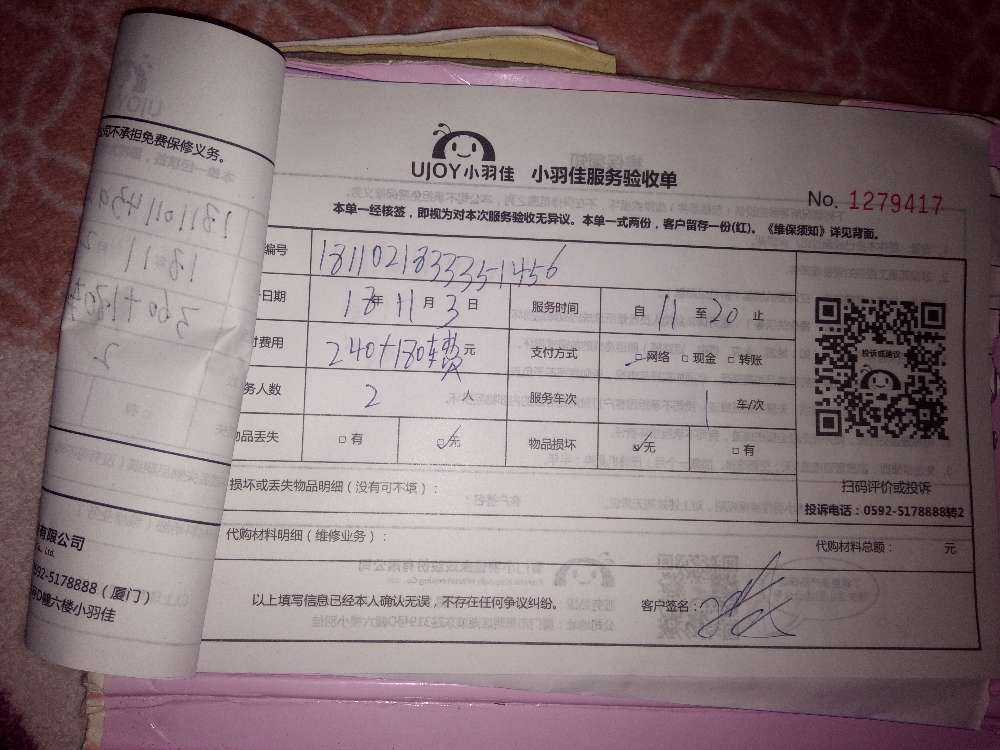 UJOY小羽佳 小羽佳服务验收单
No. 1279417
本单一经核签，即视为对本次服务验收无异议。本单一式两份，客户留存一份(红)。《维保须知》详见背面。
编号 181102183335-1456
日期 18年 11月 3日 服务时间 自 11 至 20 止
费用 240+180车费元 支付方式 □网络 □现金 □转账
务人数 2 人 服务车次 1 车/次
物品丢失 □有 ☑无 物品损坏 ☑无 □有
投诉或建议
扫码评价或投诉
投诉电话：0592-5178888转2
损坏或丢失物品明细（没有可不填）：
代购材料明细（维修业务）： 代购材料总额： 元
以上填写信息已经本人确认无误，不存在任何争议纠纷。 客户签名：
不承担免费保修义务。
有限公司
Co., Ltd.
592-5178888（厦门）
D幢六楼小羽佳